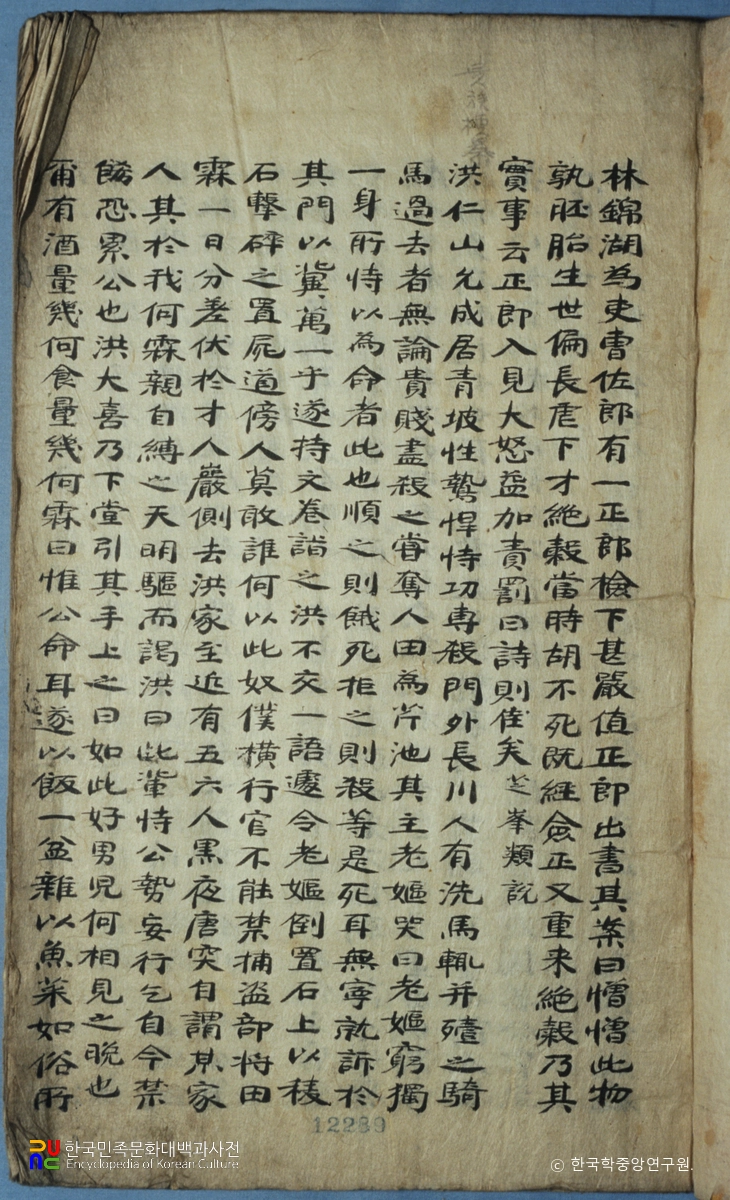 林錦湖為吏曹佐郎有一正郎檢下甚嚴値正郎出書其案曰憎憎此物
孰胚胎生世偏長虐下才絶穀當時胡不死旣經僉正又重来絶穀乃其
實事云正郎入見大怒益加責罰曰詩則佳矣 芝峯類說
洪仁山允成居青坡性鷙悍恃功專殺門外長川人有洗馬輒并殪之騎
馬過去者無論貴賤盡殺之嘗奪人田為芹池其主老嫗哭曰老嫗窮獨
一身所恃以為命者此也順之則餓死拒之則殺等是死耳無寧就訴於
其門以冀萬一乎遂持文卷詣之洪不交一語遽令老嫗倒置石上以稜
石擊碎之置屍道傍人莫敢誰何以此奴僕橫行官不能禁捕盜部將田
霖一日分差伏於才人巖側去洪家至近有五六人黒夜唐突自謂某家
人其於我何霖親自縛之天明驅而謁洪曰此輩恃公勢妄行乞自今禁
餙恐累公也洪大喜乃下堂引其手上之曰如此好男兒何相見之晩也
爾有酒量幾何食量幾何霖曰惟公命耳遂以飯一盆雜以魚菜如俗所
12289
한국민족문화대백과사전
Encyclopedia of Korean Culture
© 한국학중앙연구원.